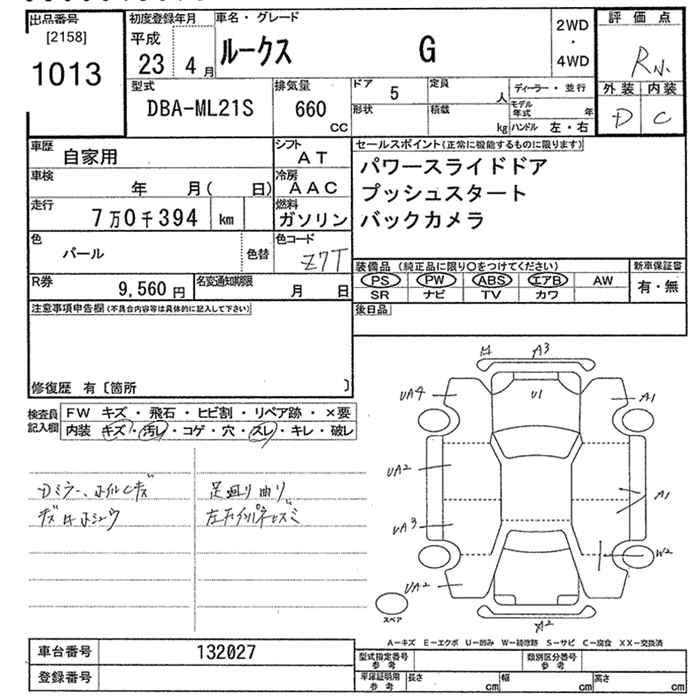 出品番号
[2158]
1013
初度登録年月
平成
23 4月
車名・グレード
ルークス G
2WD
・
4WD
評価点
R
外装 内装
D C
型式
DBA-ML21S
排気量
660
CC
ドア 5
定員 人
形状
積載 kg
ディーラー・並行
モデル年式 年
ハンドル 左・右
車歴
自家用
シフト
AT
車検
年 月( 日)
冷房
AAC
走行
7万0千394 km
燃料
ガソリン
色
パール
色替
色コード
Z7T
R券
9,560 円
名変通知期限
月 日
セールスポイント(正常に機能するものに限ります)
パワースライドドア
プッシュスタート
バックカメラ
装備品 (純正品に限り〇をつけてください)
新車保証書
PS PW ABS エアB AW
有・無
SR ナビ TV カワ
後日品
注意事項申告欄(不具合内容等は具体的に記入して下さい)
修復歴 有〔箇所 〕
検査員記入欄
FW キズ・飛石・ヒビ割・リペア跡・×要
内装 キズ・汚レ・コゲ・穴・スレ・キレ・破レ
Dミラー、ホイルCキズ
足廻り曲り
A3
UA4
U1
A1
UA2
A1
UA3
W2
UA2
A2
スペア
A−キズ E−エクボ U−凹み W−補修跡 S−サビ C−腐食 XX−交換済
車台番号
132027
登録番号
型式指定番号
参考
類別区分番号
参考
車庫証明用
参考
長さ cm
幅 cm
高さ cm